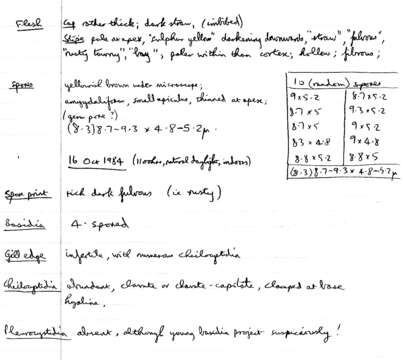 Flesh Cap rather thick; dark straw, (imbibed)
Stipe pale at apex, "sulphur yellow" darkening downwards, "straw", "fulvous",
"rusty tawny", "bay", paler within than cortex; hollow; fibrous;
spores yellowish brown under microscope;
amygdaliform, small apiculus, thinned at apex;
(germ pore?)
(8.3) 8.7-9.3 × 4.8-5.2µ
10 (random) spores
9 × 5.2 8.7 × 5.2
8.7 × 5 9.3 × 5.2
8.7 × 5 9 × 5.2
8.3 × 4.8 9 × 4.8
8.8 × 5.2 8.8 × 5
(8.3) 8.7-9.3 × 4.8-5.2µ
16 Oct 1984 (1100hr, natural daylight, indoors)
Spore print rich dark fulvous (ie rusty)
Basidia 4-spored
Gill edge infertile, with numerous cheilocystidia
Cheilocystidia abundant, clavate or clavate-capitate, clamped at base
hyaline,
Pleurocystidia absent, although young basidia project suspiciously!